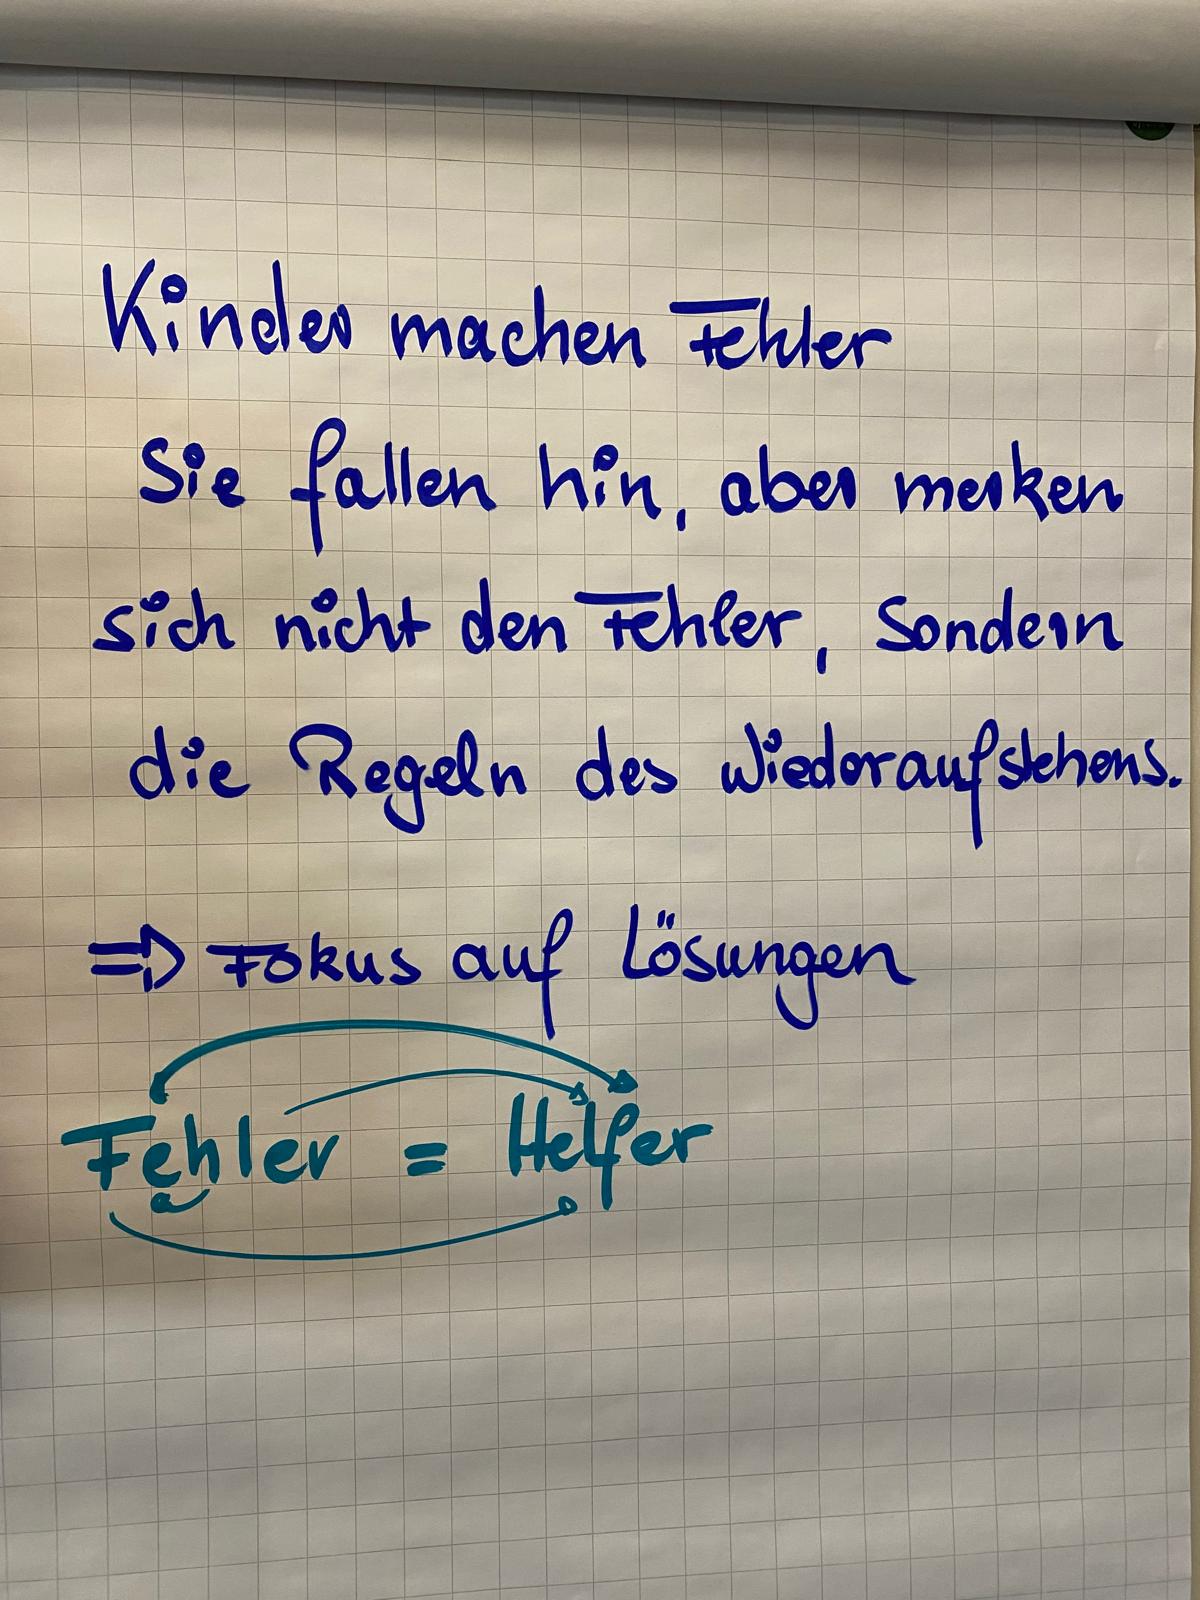 Kinder machen Fehler
Sie fallen hin, aber merken
sich nicht den Fehler, sondern
die Regeln des Wiederaufstehens.
=> Fokus auf Lösungen
Fehler = Helfer